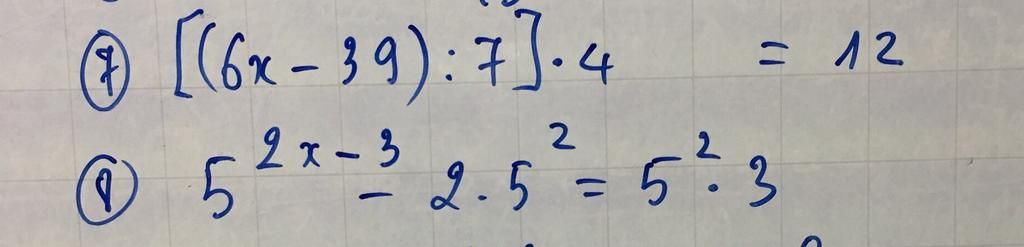 ⑦ [(6x - 39) : 7] . 4 = 12
⑧ 5^{2x - 3} - 2 . 5^2 = 5^2 . 3